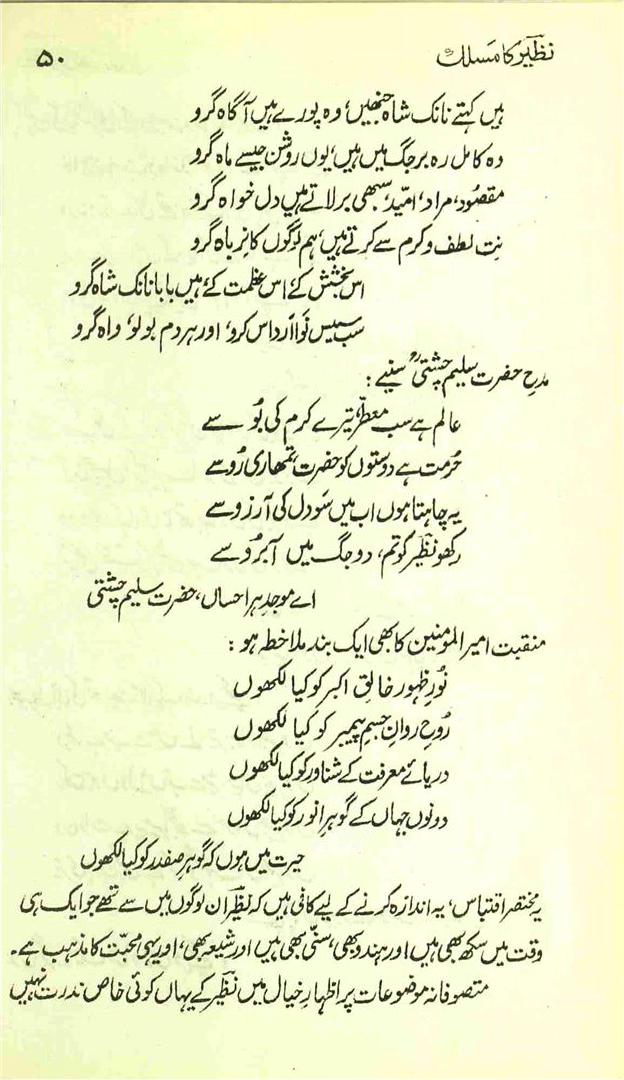 نظیرؔ کا مَسلک
۵۰
ہیں کہتے نانک شاہ جنھیں، وہ پورے ہیں آگاہ گرو
وہ کامل رہ بر جگ میں ہیں، یوں روشن جیسے ماہ گرو
مقصُود، مراد، امّید، سبھی بر لاتے ہیں دل خواہ گرو
نِت لطف و کرم سے کرتے ہیں، ہم لوگوں کا نِرباہ گرو
اس بخشش کے، اس عظمت کے، ہیں بابا نانک شاہ گرو
سب سیس نَوا اَرداس کرو، اور ہر دم بولو، واہ گرو
مدحِ حضرت سلیم چشتیؒ سنیے :
عالم ہے سب معطر، تیرے کرم کی بُو سے
حُرمت ہے دوستوں کو حضرت، تمھاری رُو سے
یہ چاہتا ہوں اب میں سَو دل کی آرزو سے
رکھو نظیرؔ کو تم، دو جگ میں آبرُو سے
اے موجدِ ہر احساں، حضرت سلیم چشتی
منقبت امیر المومنین کا بھی ایک بند ملاخطہ ہو :
نُورِ ظہورِ خالقِ اکبر کو کیا لکھوں
رُوحِ روانِ جسمِ پیمبر کو کیا لکھوں
دریائے معرفت کے شناور کو کیا لکھوں
دونوں جہاں کے گوہرِ انور کو کیا لکھوں
حیرت میں ہوں کہ گوہرِ صفدر کو کیا لکھوں
یہ مختصر اقتباس، یہ اندازہ کرنے کے لیے کافی ہیں کہ نظیرؔ ان لوگوں میں سے تھے جو ایک ہی
وقت میں سکھ بھی ہیں اور ہندو بھی، سنّی بھی ہیں اور شیعہ بھی، اور یہی محبّت کا مذہب ہے۔
متصوفانہ موضوعات پر اظہارِ خیال میں نظیرؔ کے یہاں کوئی خاص ندرت نہیں